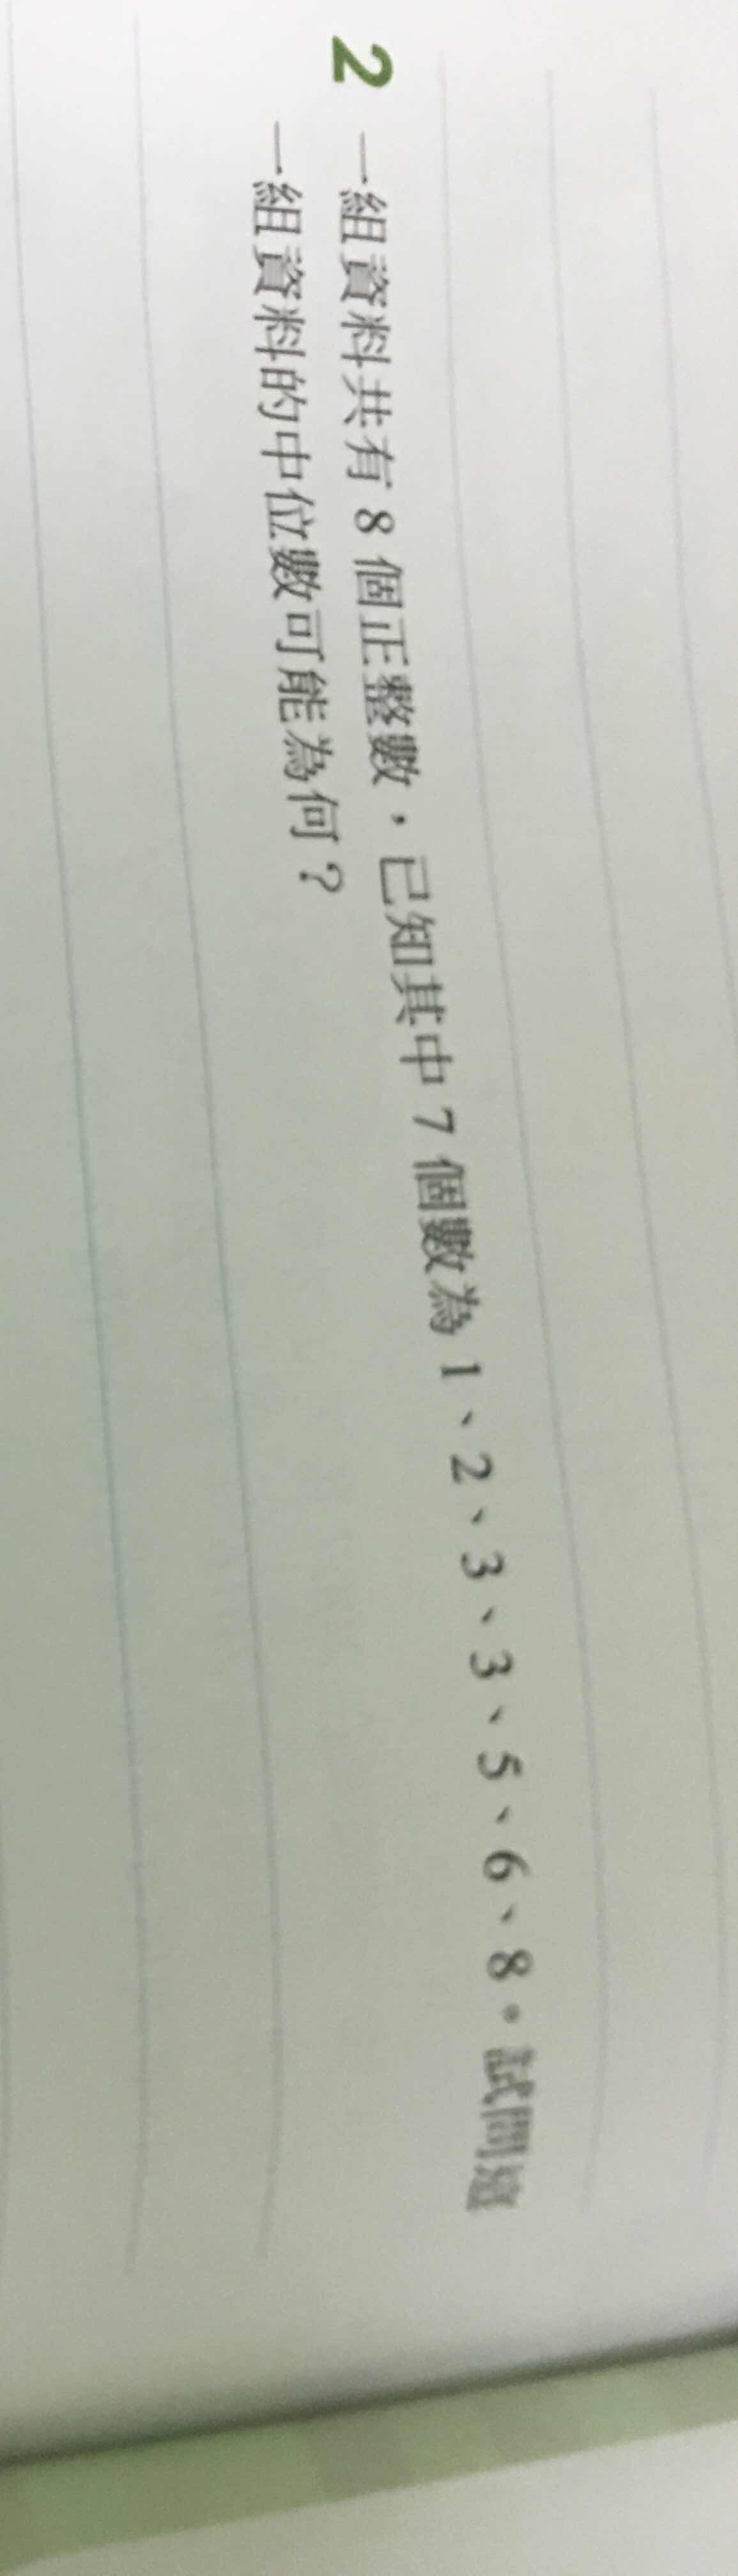 2 一組資料共有 8 個正整數，已知其中 7 個數為 1、2、3、3、5、6、8。試問這
一組資料的中位數可能為何？